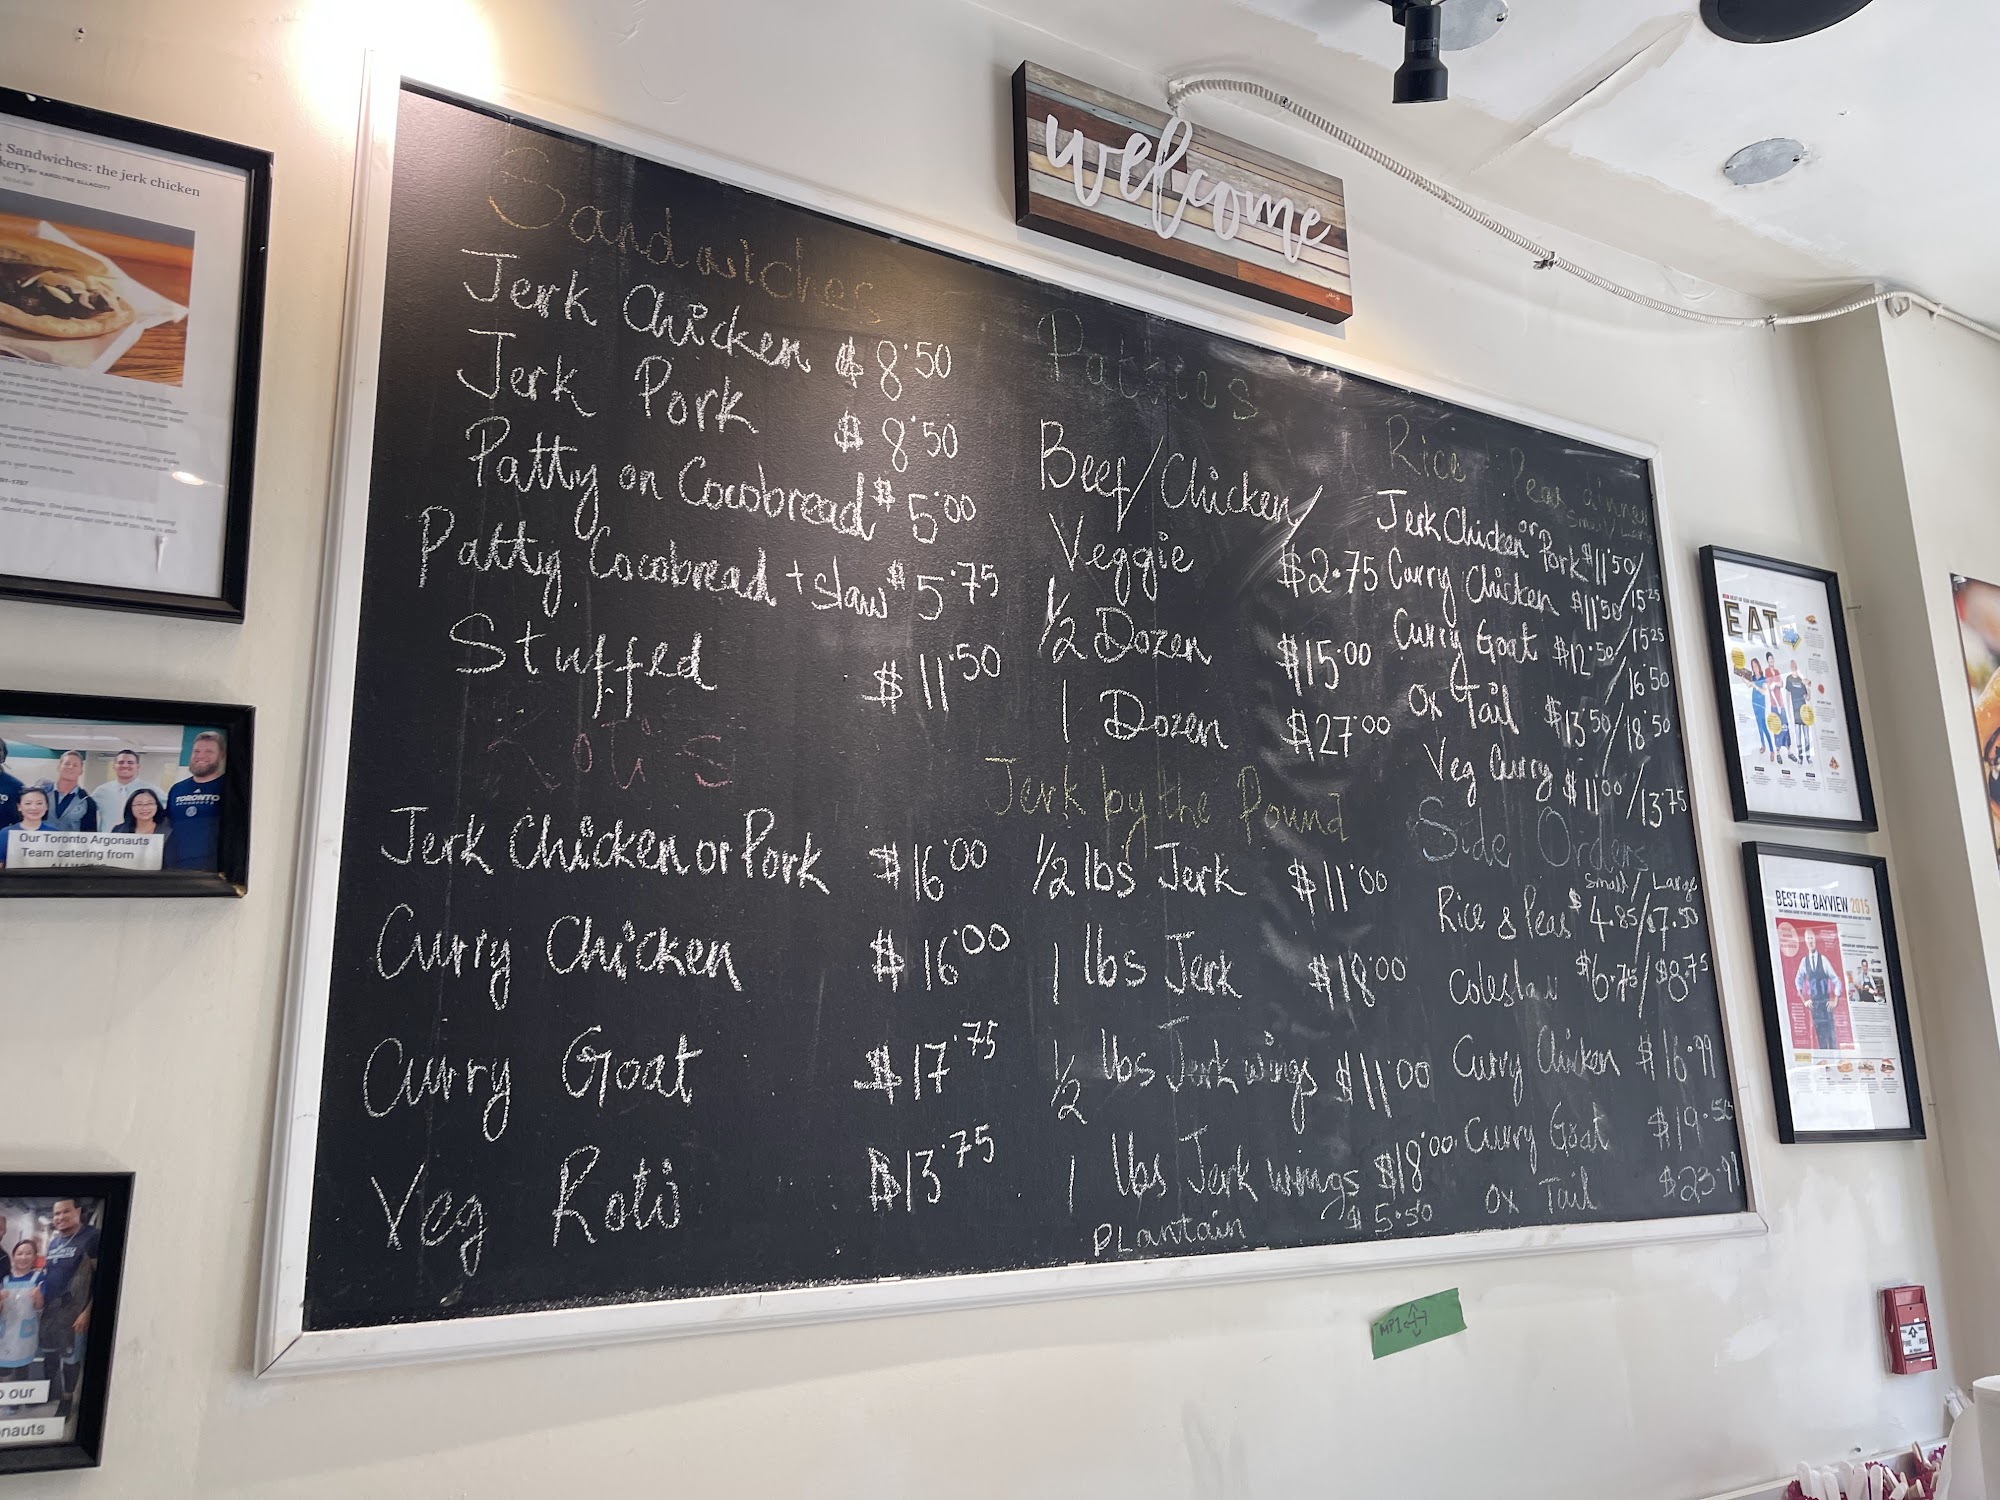 Sandwiches: the jerk chicken
BY KAROLYNE ELLACOTT
Our Toronto Argonauts
Team catering from
TORONTO
our
welcome
Sandwiches
Jerk Chicken $8.50
Jerk Pork $8.50
Patty on Cocobread $5.00
Patty Cocobread + slaw $5.75
Stuffed $11.50
Roti's
Jerk Chicken or Pork $16.00
Curry Chicken $16.00
Curry Goat $17.75
Veg Roti $13.75
Patties
Beef/Chicken/
Veggie $2.75
1/2 Dozen $15.00
1 Dozen $27.00
Jerk by the Pound
1/2 lbs Jerk $11.00
1 lbs Jerk $18.00
1/2 lbs Jerk wings $11.00
1 lbs Jerk wings $18.00
PLantain $5.50
Rice + Peas dinner
Small/
Jerk Chicken or Pork $11.50/15.25
Curry Chicken $11.50/15.25
Curry Goat $12.50/16.50
Ox Tail $13.50/18.50
Veg Curry $11.00/13.75
Side Orders
Small/Large
Rice & Peas $4.85/$7.50
Coleslaw $6.75/$8.75
Curry Chicken $16.99
Curry Goat $19.50
Ox Tail $23.99
EAT
BEST OF BAYVIEW 2015
MP1
FIRE